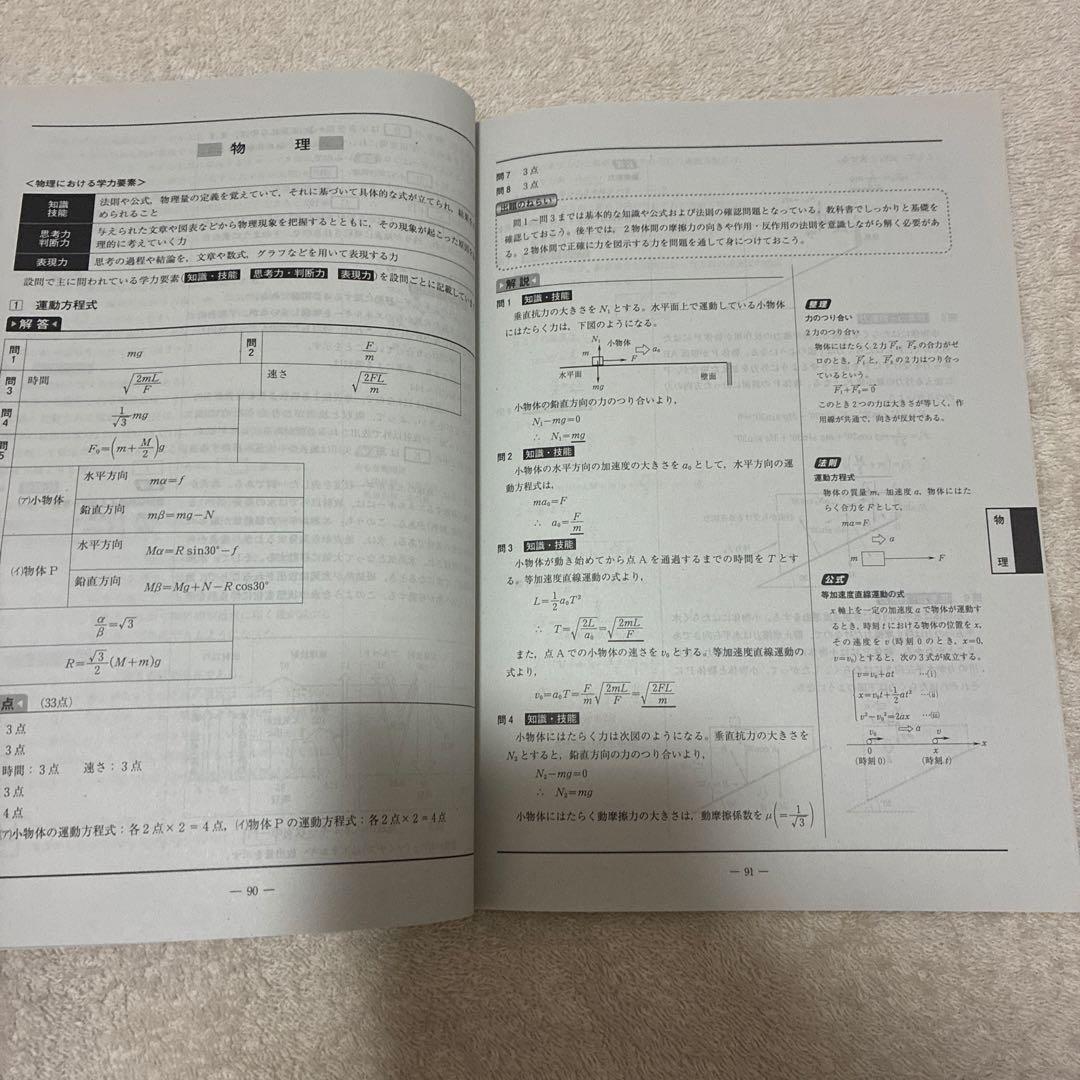 物 理
<物理における学力要素>
知識
技能
法則や公式,物理量の定義を覚えていて,それに基づいて具体的な式が立てられ,結果を
められること
思考力
判断力
与えられた文章や図表などから物理現象を把握するとともに,その現象が起こった原因を
理的に考えていく力
表現力
思考の過程や結論を,文章や数式,グラフなどを用いて表現する力
設問で主に問われている学力要素(知識・技能 思考力・判断力 表現力)を設問ごとに記載してい
1 運動方程式
▶解答◀
問1 mg 問2 F/m
問3 時間 √(2mL/F) 速さ √(2FL/m)
問4 1/√3 mg
問5 F₀=(m+M/2)g
(ア)小物体 水平方向 mα=f
鉛直方向 mβ=mg−N
(イ)物体P 水平方向 Mα=R sin30°−f
鉛直方向 Mβ=Mg+N−R cos30°
α/β=√3
R=√3/2(M+m)g
点◀ (33点)
3点
3点
時間:3点 速さ:3点
3点
4点
(ア)小物体の運動方程式:各2点×2=4点,(イ)物体Pの運動方程式:各2点×2=4点
― 90 ―
問7 3点
問8 3点
出題のねらい
問1〜問3までは基本的な知識や公式および法則の確認問題となっている。教科書でしっかりと基礎を
確認しておこう。後半では,2物体間の摩擦力の向きや作用・反作用の法則を意識しながら解く必要があ
る。2物体間で正確に力を図示する力を問題を通して身につけておこう。
▶解説◀
問1 知識・技能
垂直抗力の大きさをN₁とする。水平面上で運動している小物体
にはたらく力は,下図のようになる。
N₁ 小物体
m a₀
F
水平面 壁面
mg
小物体の鉛直方向の力のつり合いより,
N₁−mg=0
∴ N₁=mg
問2 知識・技能
小物体の水平方向の加速度の大きさをa₀として,水平方向の運
動方程式は,
ma₀=F
∴ a₀=F/m
問3 知識・技能
小物体が動き始めてから点Aを通過するまでの時間をTとす
る。等加速度直線運動の式より,
L=1/2 a₀T²
∴ T=√(2L/a₀)=√(2mL/F)
また,点Aでの小物体の速さをv₀とする。等加速度直線運動の
式より,
v₀=a₀T=F/m √(2mL/F)=√(2FL/m)
問4 知識・技能
小物体にはたらく力は次図のようになる。垂直抗力の大きさを
N₂とすると,鉛直方向の力のつり合いより,
N₂−mg=0
∴ N₂=mg
小物体にはたらく動摩擦力の大きさは,動摩擦係数をμ(=1/√3)
整理
力のつり合い
2力のつり合い
物体にはたらく2力F₁,F₂の合力がゼ
ロのとき,F₁と,F₂の2力はつり合っ
ているという。
F₁+F₂=0
このとき2つの力は大きさが等しく,作
用線が共通で,向きが反対である。
法則
運動方程式
物体の質量m,加速度a,物体にはた
らく合力をFとして,
ma=F
a
m F
公式
等加速度直線運動の式
x軸上を一定の加速度aで物体が運動す
るとき,時刻tにおける物体の位置をx,
その速度をv(時刻0のとき,x=0,
v=v₀)とすると,次の3式が成立する。
v=v₀+at …(i)
x=v₀t+1/2 at² …(ii)
v²−v₀²=2ax …(iii)
v₀ v a
0 x x
(時刻0) (時刻t)
物
理
― 91 ―